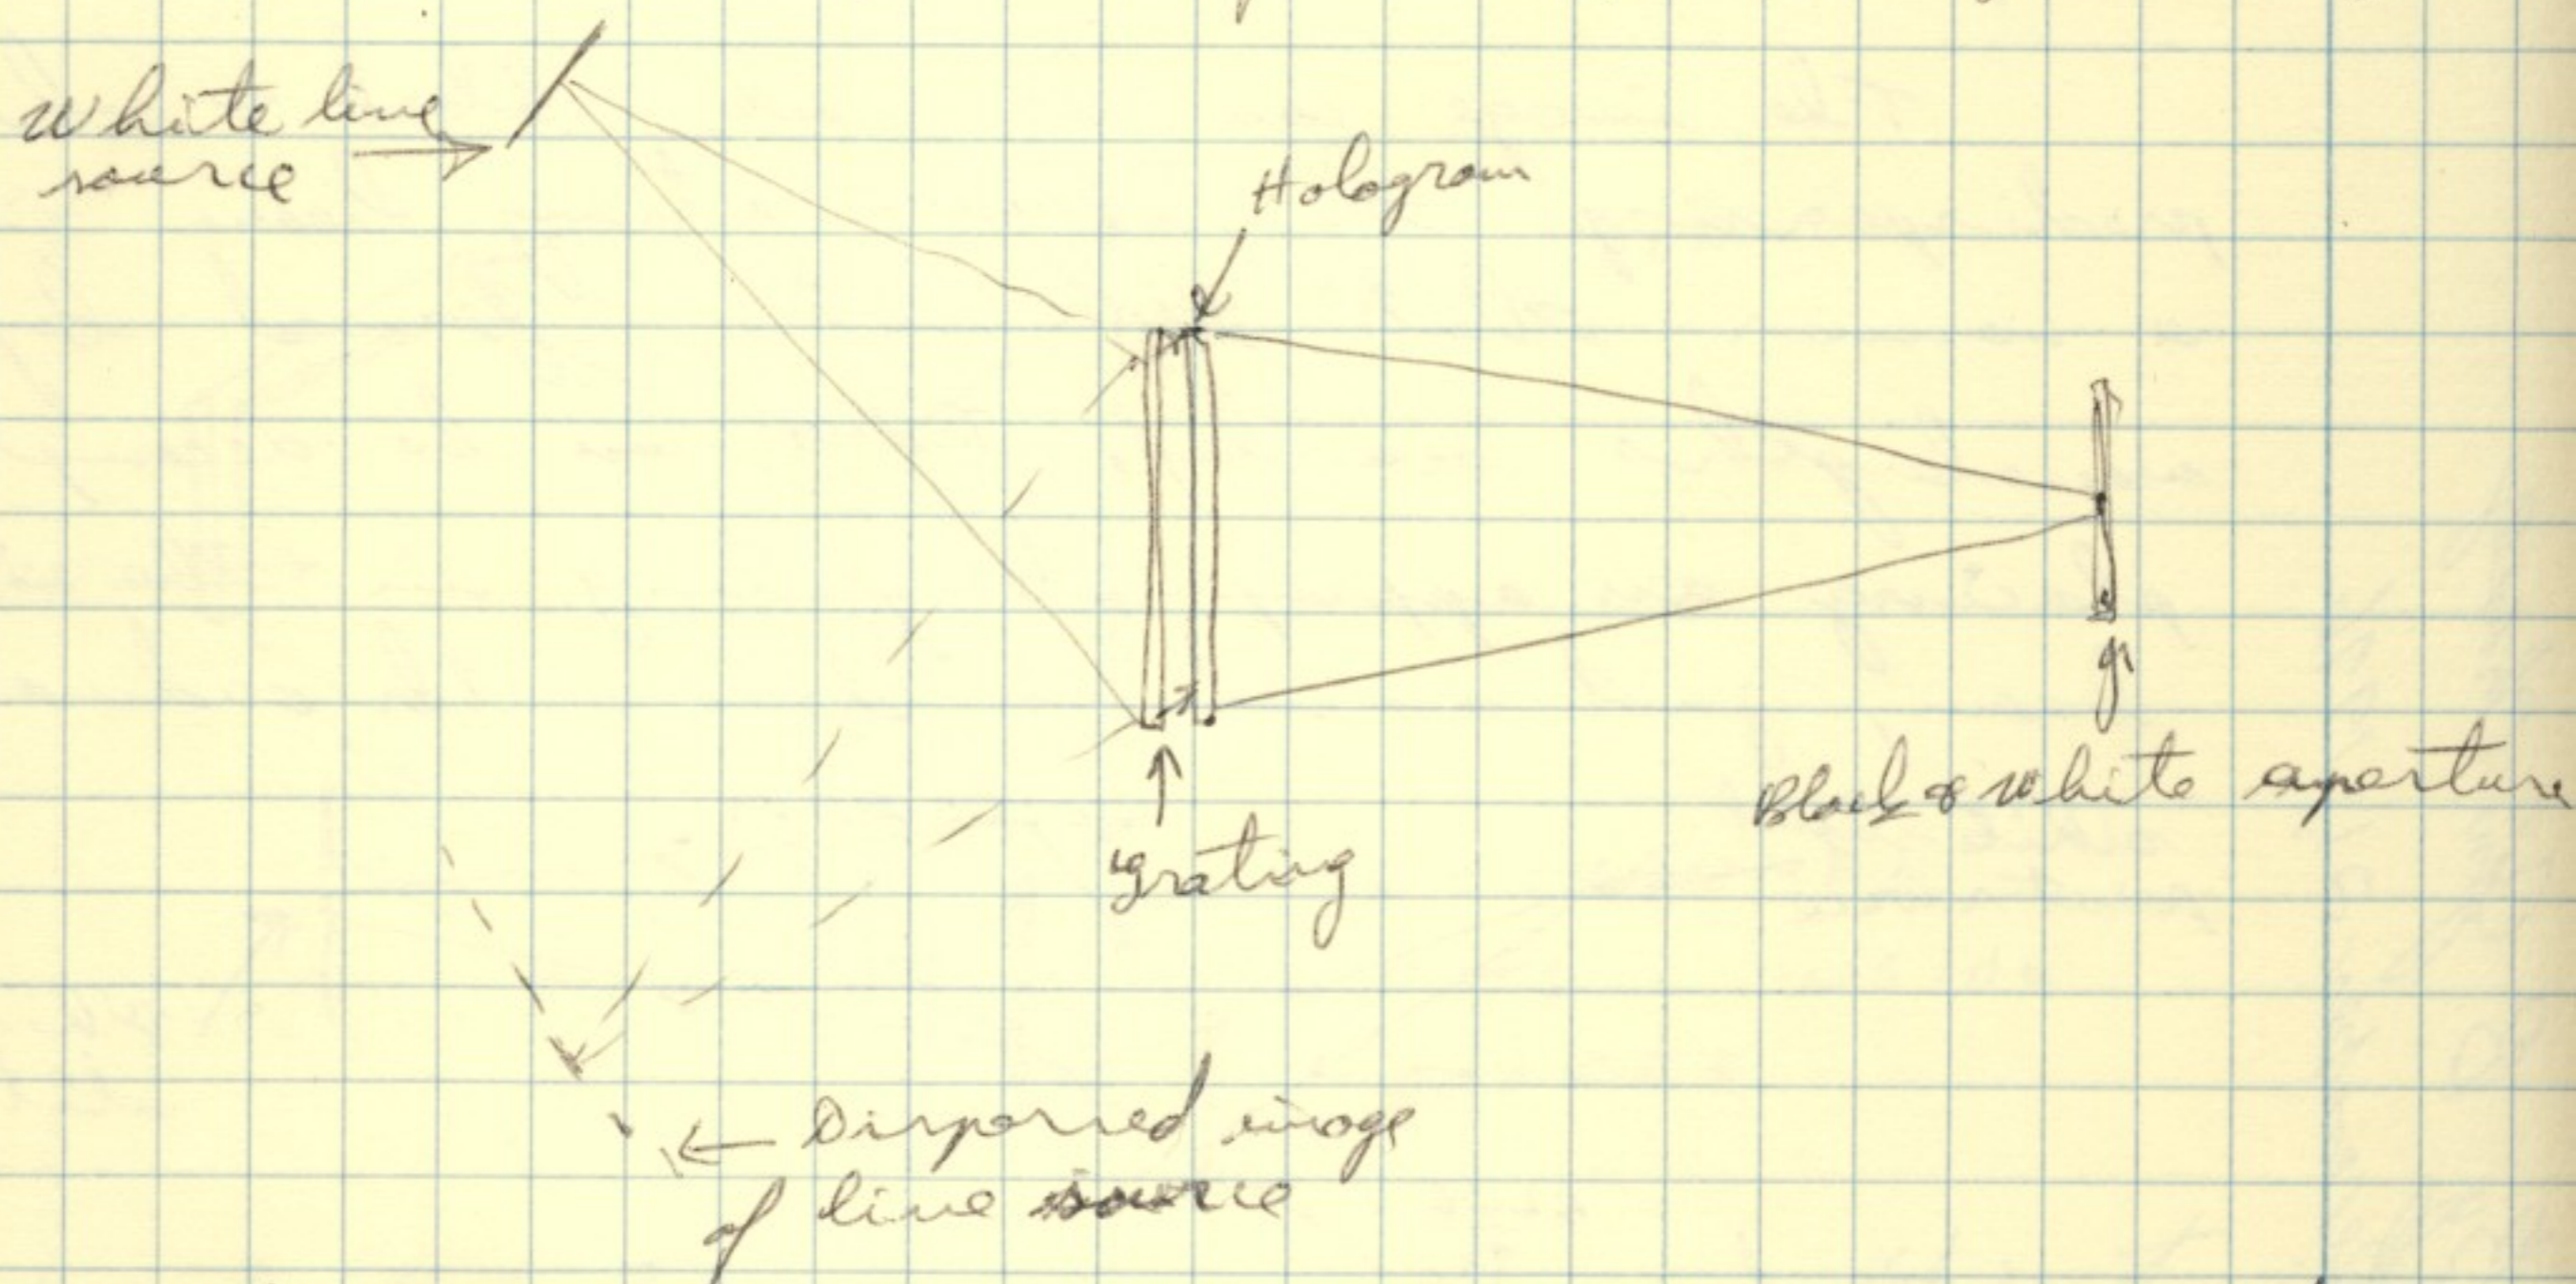 White line
source
Hologram
Black & White aperture
grating
Dispersed image
of line source